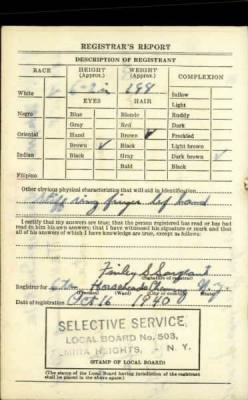 REGISTRAR'S REPORT
DESCRIPTION OF REGISTRANT
RACE HEIGHT (Approx.) WEIGHT (Approx.) COMPLEXION
White 6-2 in 198 Sallow
EYES HAIR Light
Negro Blue Blonde Ruddy
Gray Red Dark
Oriental Hazel Brown ✓ Freckled
Brown ✓ Black Light brown
Indian Black Gray Dark brown ✓
Bald Black
Filipino
Other obvious physical characteristics that will aid in identification
Stiff ring finger left hand
I certify that my answers are true; that the person registered has read or has had
read to him his own answers; that I have witnessed his signature or mark and that
all of his answers of which I have knowledge are true, except as follows:
Finley S Sargeant
(Signature of registrar)
Registrar for Horseheads Chemung N.Y.
Date of registration Oct 16 1940
SELECTIVE SERVICE,
LOCAL BOARD No. 503,
ELMIRA HEIGHTS, N. Y.
(The stamp of the Local Board having jurisdiction of the registrant
shall be placed in the above space)